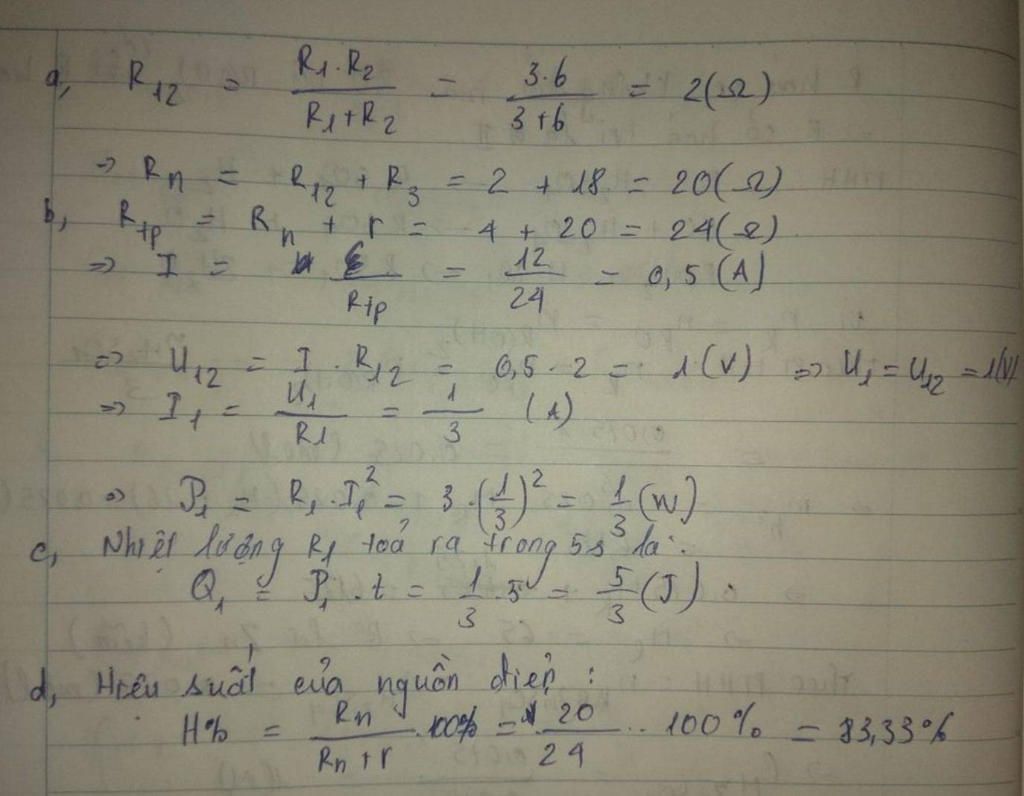 a, R₁₂ = \frac{R₁·R₂}{R₁+R₂} = \frac{3·6}{3+6} = 2(Ω)
=> Rₙ = R₁₂ + R₃ = 2 + 18 = 20(Ω)
b, Rₜₚ = Rₙ + r = 4 + 20 = 24(Ω)
=> I = \frac{ℰ}{Rₜₚ} = \frac{12}{24} = 0,5 (A)
=> U₁₂ = I · R₁₂ = 0,5 · 2 = 1(V) => U₁ = U₁₂ = 1(V)
=> I₁ = \frac{U₁}{R1} = \frac{1}{3} (A)
=> P₁ = R₁ · I₁² = 3 · (\frac{1}{3})² = \frac{1}{3} (W)
c, Nhiệt lượng R₁ toả ra trong 5s là :
Q₁ = P₁ · t = \frac{1}{3} · 5 = \frac{5}{3} (J)
d, Hiệu suất của nguồn điện :
H% = \frac{Rₙ}{Rₙ+r} · 100% = \frac{20}{24} · 100% = 83,33%